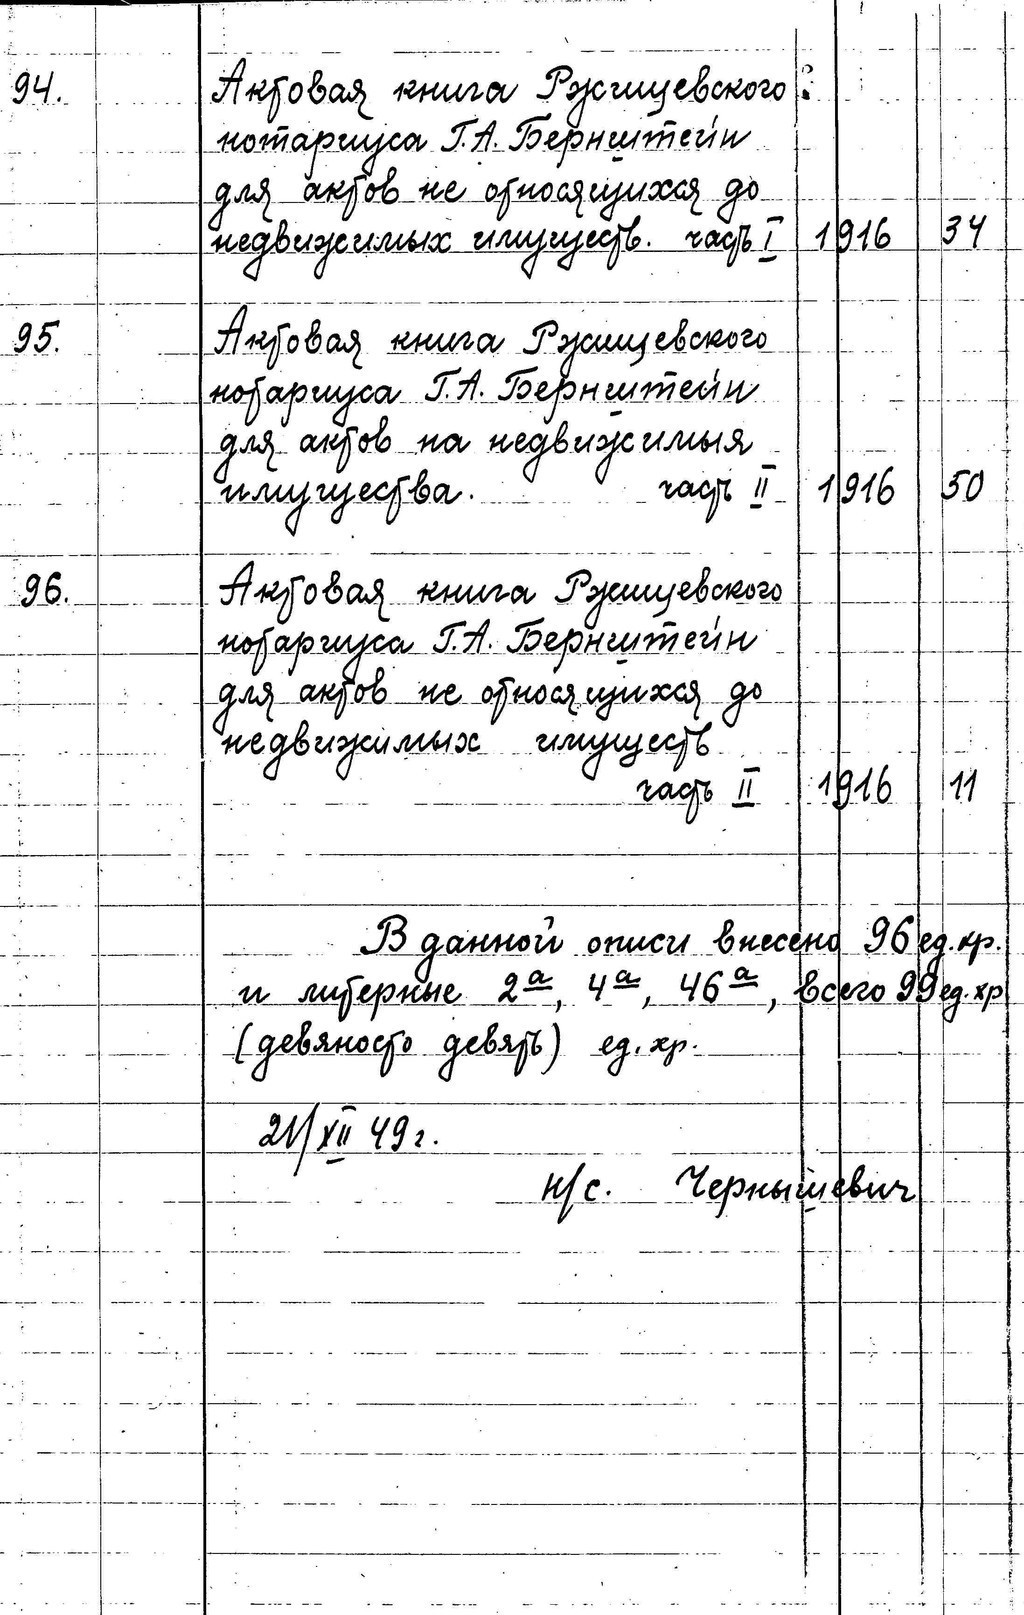 94. Актовая книга Ржищевского
нотариуса Г.А. Бернштейн
для актов не относящихся до
недвижимых имуществ. часть I 1916 34
95. Актовая книга Ржищевского
нотариуса Г.А. Бернштейн
для актов на недвижимыя
имущества. часть II 1916 50
96. Актовая книга Ржищевского
нотариуса Г.А. Бернштейн
для актов не относящихся до
недвижимых имуществ
часть II 1916 11
В данной описи внесено 96 ед. хр.
и литерные 2а, 4а, 46а, всего 99 ед. хр
(девяносто девять) ед. хр.
21/XII 49 г.
н/с. Чернышевич